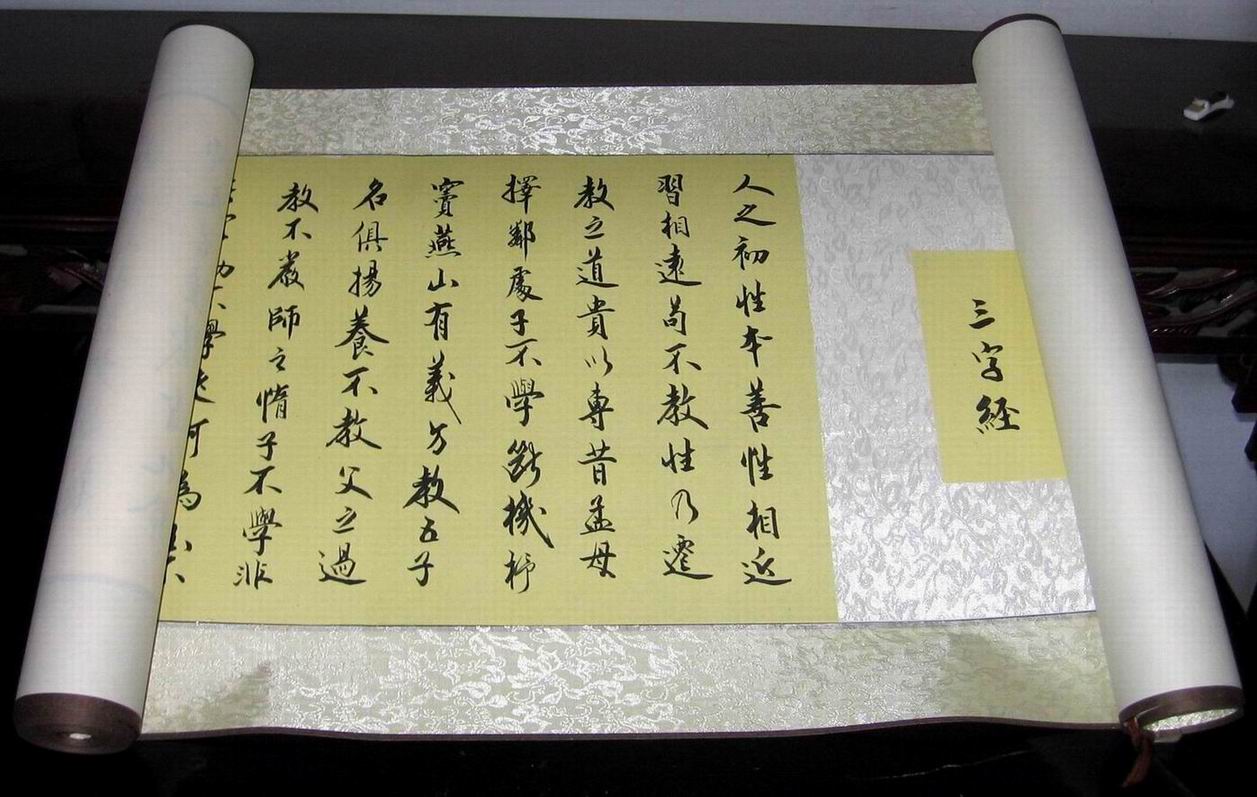 三字經
人之初性本善性相近
習相遠苟不教性乃遷
教之道貴以專昔孟母
擇鄰處子不學斷機杼
竇燕山有義方教五子
名俱揚養不教父之過
教不嚴師之惰子不學非
幼不學老何為玉不